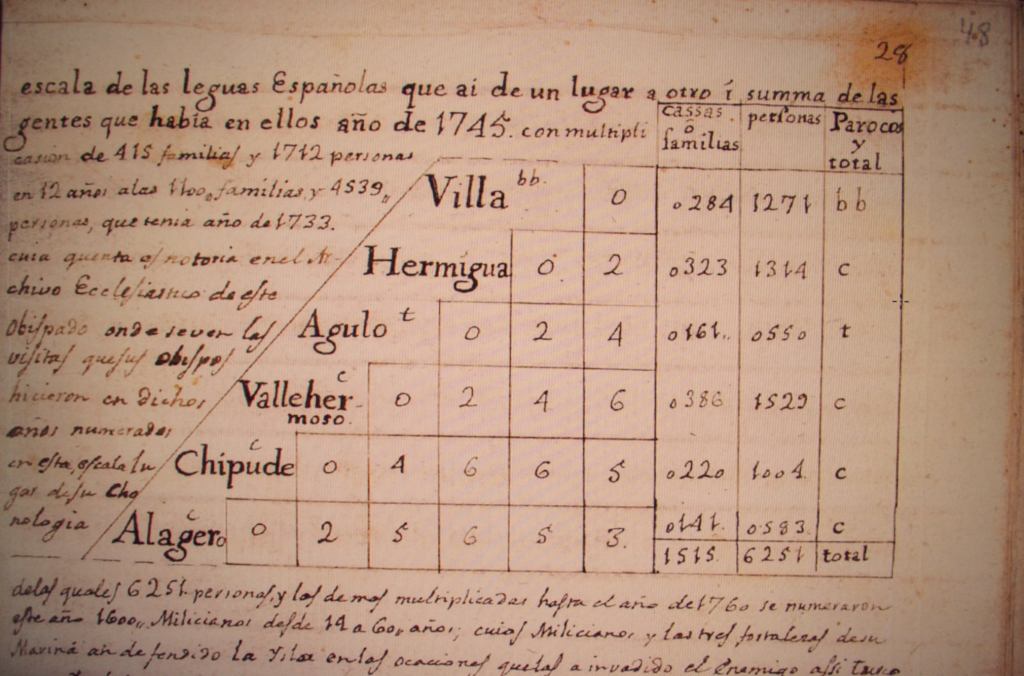 48
28
escala de las leguas Españolas que ai de un lugar a otro i summa de las
gentes que había en ellos año de 1745. con multipli
casion de 415 familias y 1712 personas
en 12 años alas 1100,, familias, y 4539,,
personas, que tenia año de 1733.
cuia quenta es notoria en el Ar-
chivo Ecclesiastico de este
Obispado onde se ven las
visitas que sus obispos
hicieron en dichos
años numerados
en esta, escala lu
gar de su Cho
nologia
cassas o familias | personas | Parocos y total
Villa bb. | 0 | 0284 | 1271 | bb
Hermigua | 0 | 2 | 0323 | 1314 | c
Agulo t | 0 | 2 | 4 | 0161.. | 0550 | t
Valleher- c | 0 | 2 | 4 | 6 | 0386 | 1529 | c
moso.
Chipude c | 0 | 4 | 6 | 6 | 5 | 0220 | 1004 | c
Alagero c | 0 | 2 | 5 | 6 | 5 | 3. | 0141. | 0583. | c
1515. | 6251 | total
de las quales 6251. personas, y las demas multiplicadas hasta el año de 1760 se numeraron
este año 1600,, Milicianos desde 14 a 60,, años; cuios Milicianos y las tres fortalezas de su
Marina an defendido la Ysla en las ocaciones que las a invadido el Enemigo assi